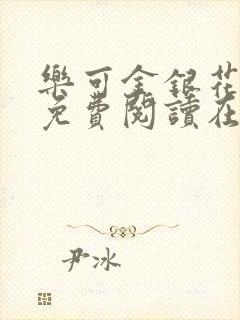 樂可金銀花
免費閱讀在
尹冰